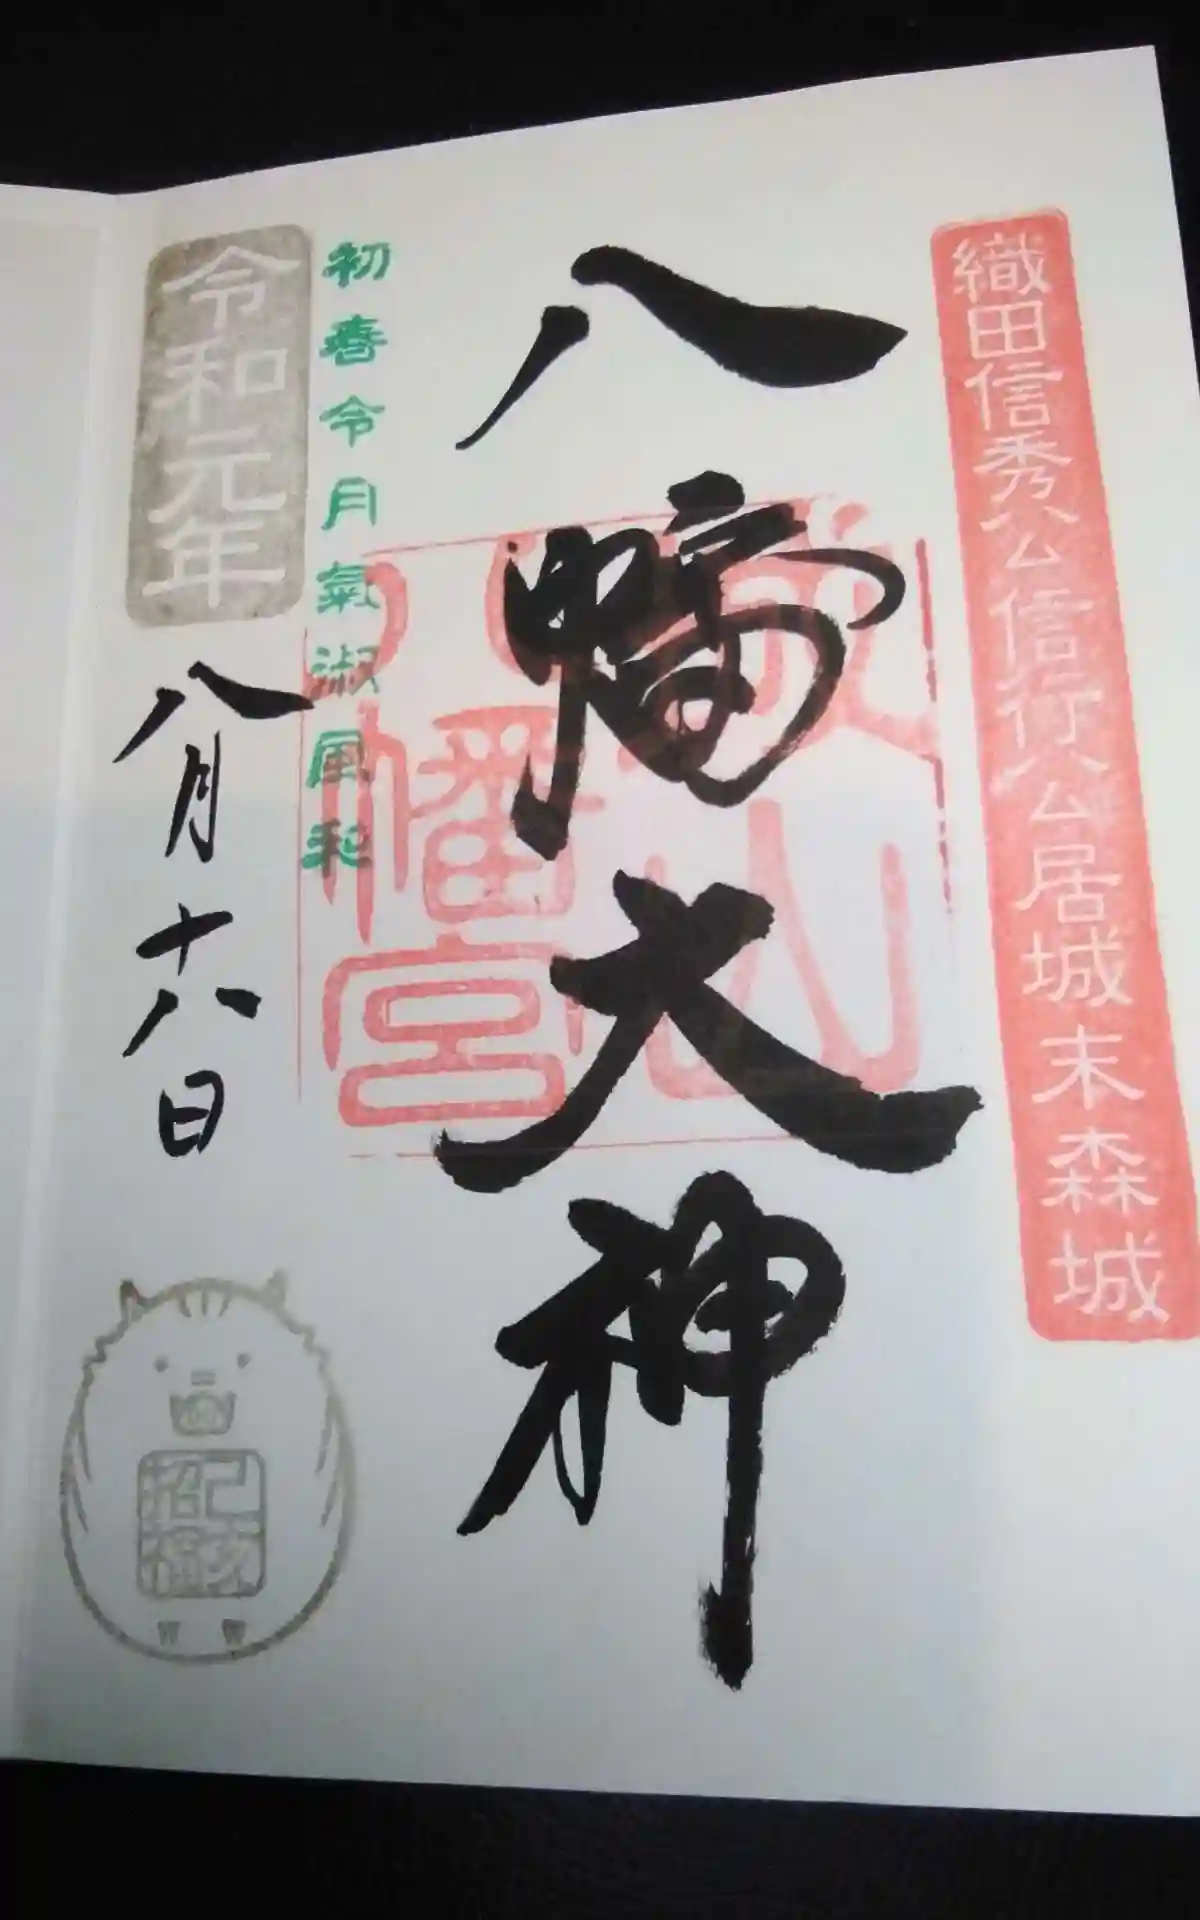 織田信秀公信行公居城末森城
八幡大神
城山八幡宮
初春令月氣淑風和
令和元年
八月十八日
己亥
招福